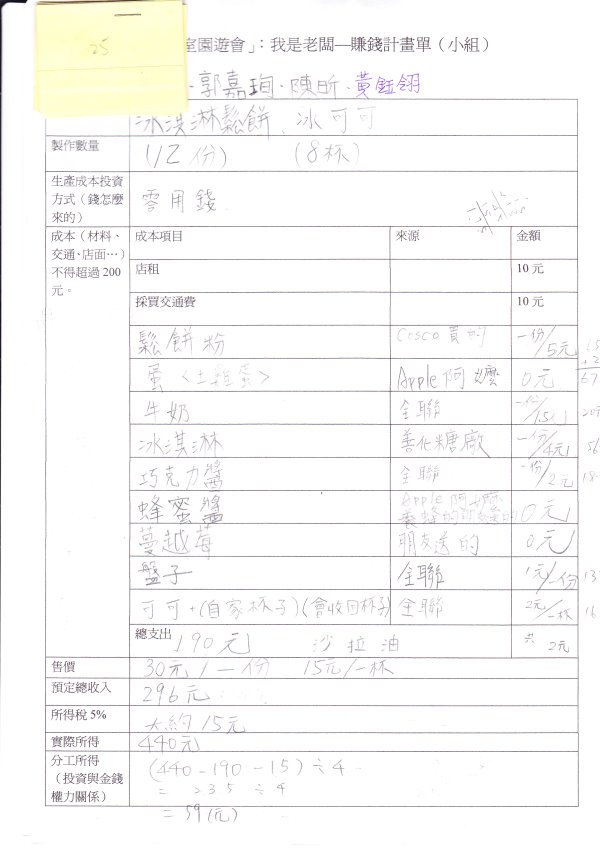 25
室園遊會」：我是老闆—賺錢計畫單（小組）
郭嘉珣、陳昕、黃鈺翎
冰淇淋鬆餅、冰可可
製作數量 (12份) (8杯)
生產成本投資
方式（錢怎麼
來的） 零用錢
成本（材料、
交通、店面…）
不得超過 200
元。
成本項目 來源 金額
店租 10 元
採買交通費 10 元
鬆餅粉 Cosco買的 一份/5元
蛋〈土雞蛋〉 Apple阿嬤 0元
牛奶 全聯
冰淇淋 善化糖廠 一份/4元
巧克力醬 全聯 一份/2元
蜂蜜醬 Apple阿嬤 0元
蔓越莓 朋友送的 0元
盤子 全聯 1元/一份
可可+(自家杯子)(會收回杯子) 全聯 2元/一杯
總支出 190元 沙拉油 共2元
售價 30元/一份 15元/一杯
預定總收入 296元
所得稅 5% 大約15元
實際所得 440元
分工所得
（投資與金錢
權力關係）
(440-190-15)÷4
= 235÷4
= 59(元)